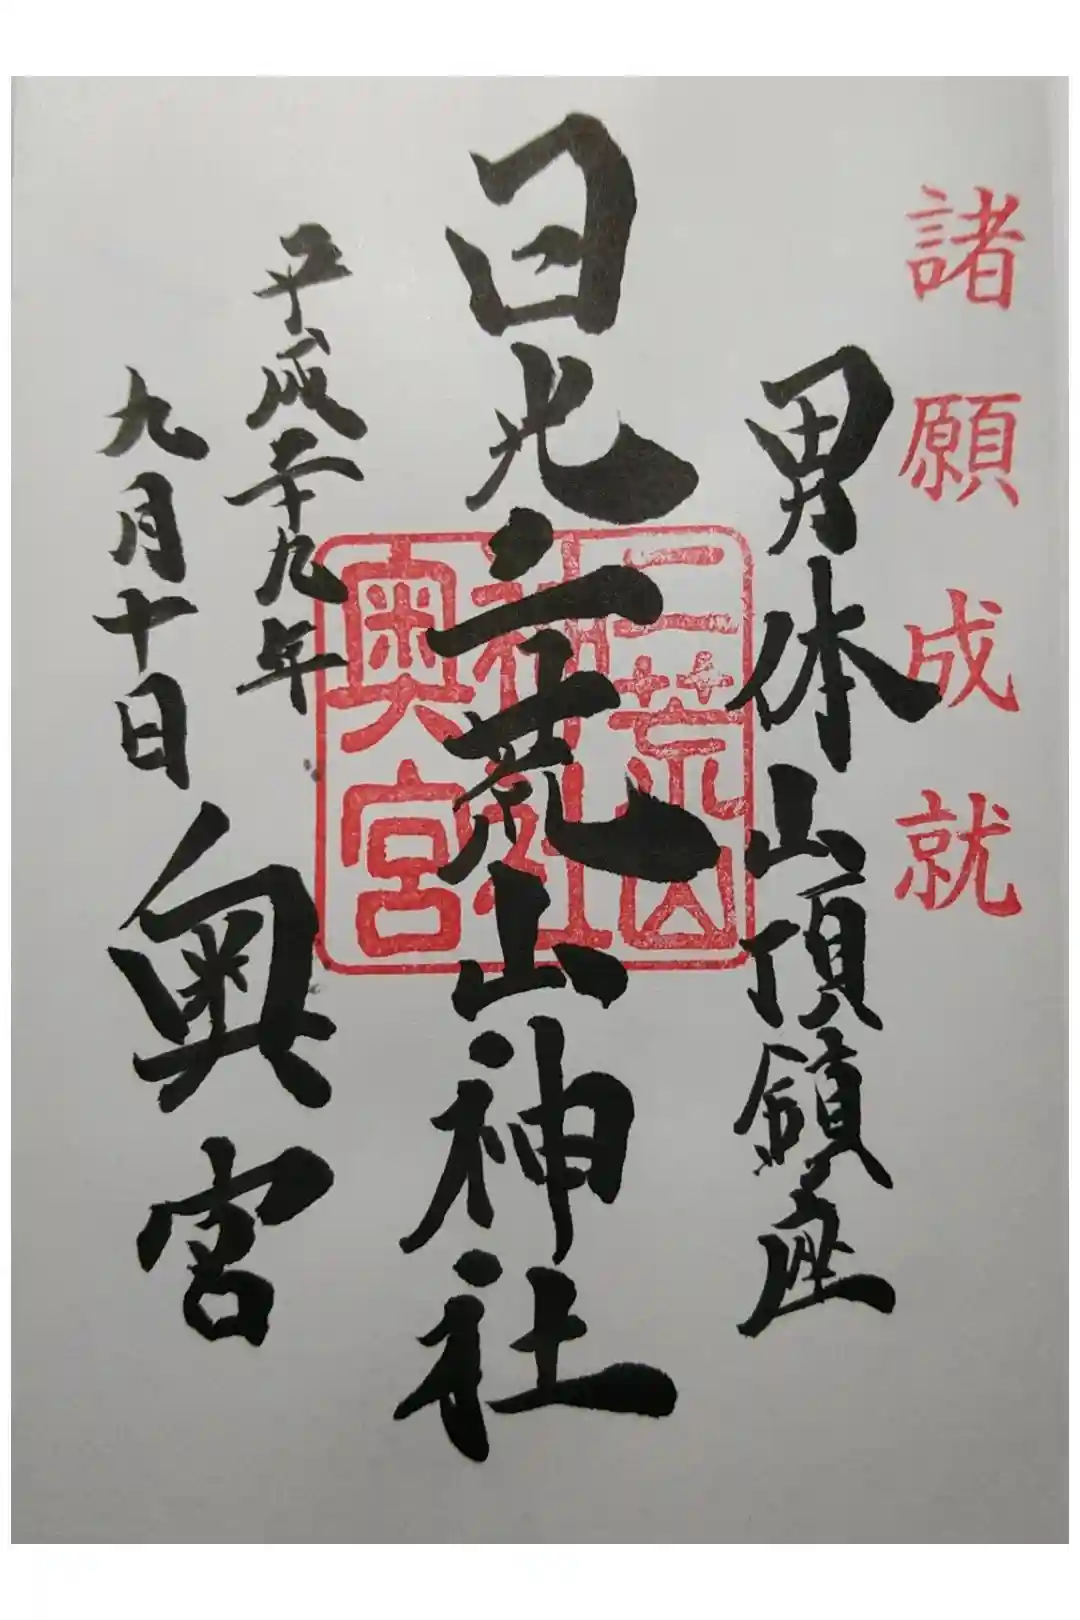 諸願成就
男体山頂鎮座
日光二荒山神社
二荒山
神社
奥宮
平成二十九年
九月十日
奥宮